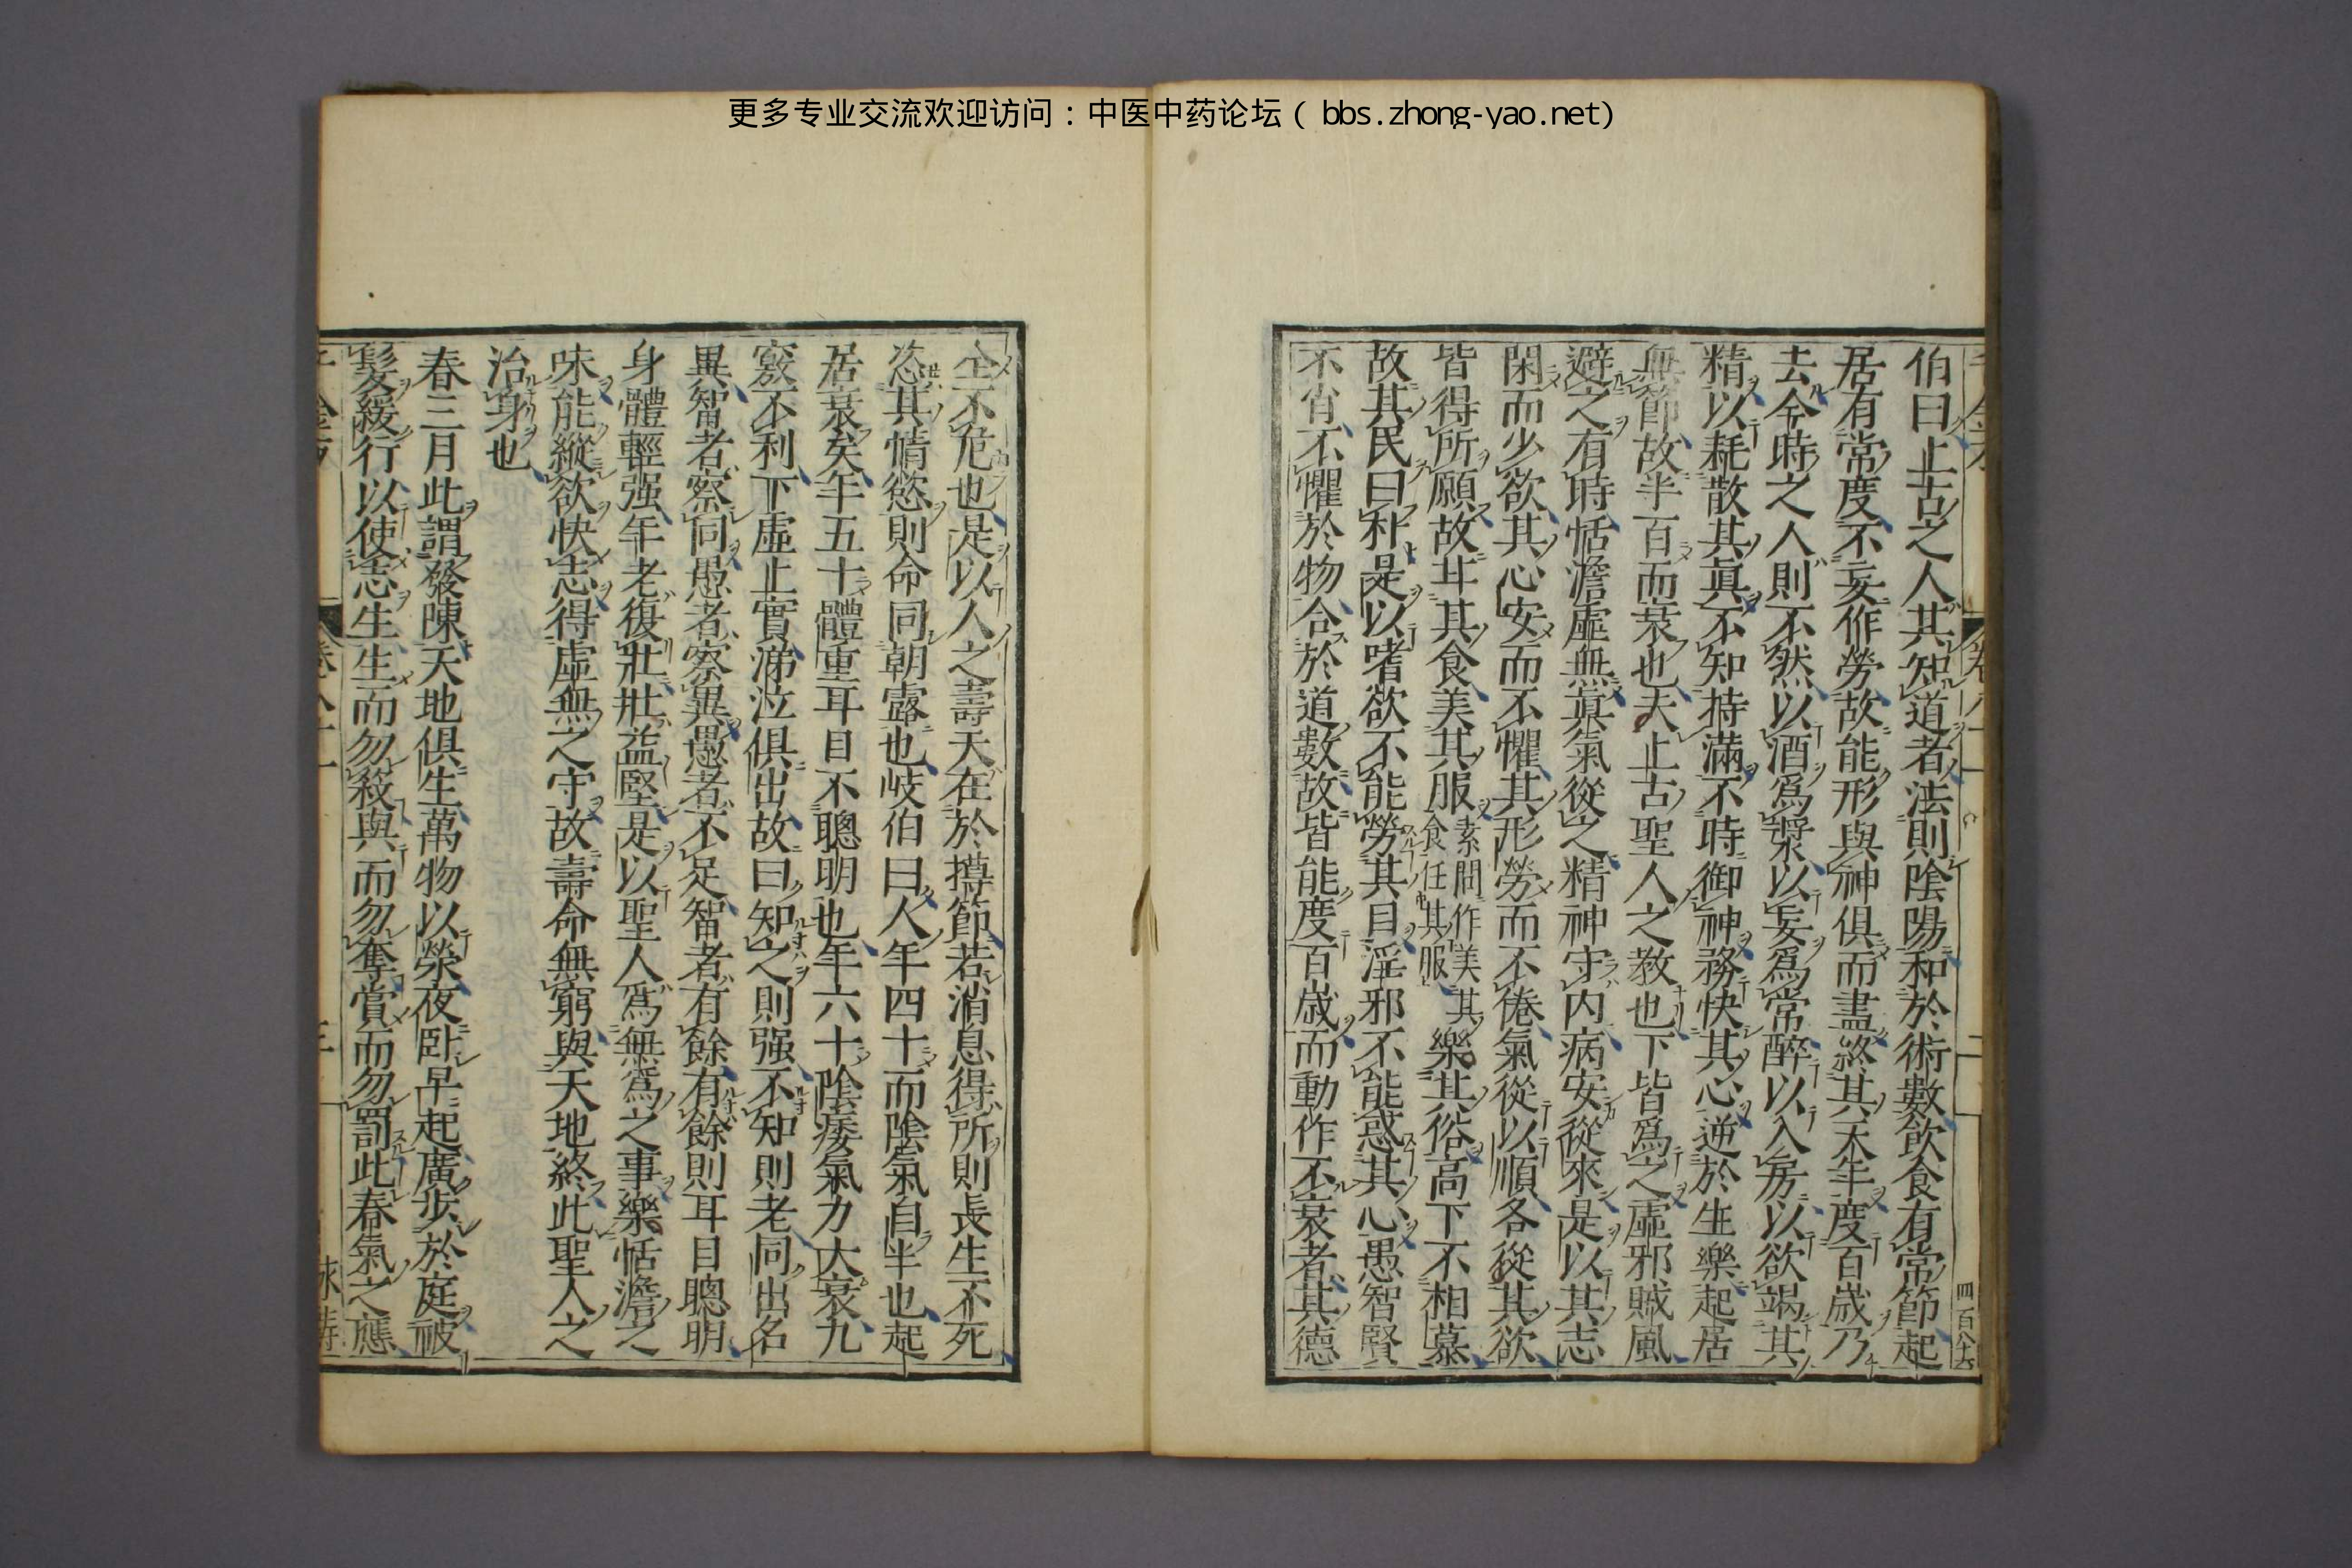 更多专业交流欢迎访问：中医中药论坛（bbs.zhong-yao.net)
四百八十六
伯曰上古之人其知道者法則陰陽和於術數飲食有常節起
居有常度不妄作勞故能形與神俱而盡終其天年度百歲乃
去今時之人則不然以酒爲漿以妄爲常醉以入房以欲竭其
精以耗散其眞不知持滿不時御神務快其心逆於生樂起居
無節故半百而衰也夫上古聖人之教也下皆爲之虛邪賊風
避之有時恬澹虛無眞氣從之精神守内病安從來是以其志
閑而少欲其心安而不懼其形勞而不倦氣從以順各從其欲
皆得所願故甘其食美其服素問作美其食任其服樂其俗高下不相慕
故其民曰朴是以嗜欲不能勞其目淫邪不能惑其心愚智賢
不肖不懼於物合於道數故皆能度百歲而動作不衰者其德
全不危也是以人之壽夭在於撙節若消息得所則長生不死
恣其情慾則命同朝露也岐伯曰人年四十而陰氣自半也起
居衰矣年五十體重耳目不聰明也年六十陰痿氣力大衰九
竅不利下虛上實涕泣俱出故曰知之則强不知則老同出名
異智者察同愚者察異愚者不足智者有餘有餘則耳目聰明
身體輕强年老復壯壯益堅是以聖人爲無爲之事樂恬澹之
味能縱欲快志得虛無之守故壽命無窮與天地終此聖人之
治身也
春三月此謂發陳天地俱生萬物以榮夜卧早起廣步於庭被
髮緩行以使志生生而勿殺與而勿奪賞而勿罰此春氣之應